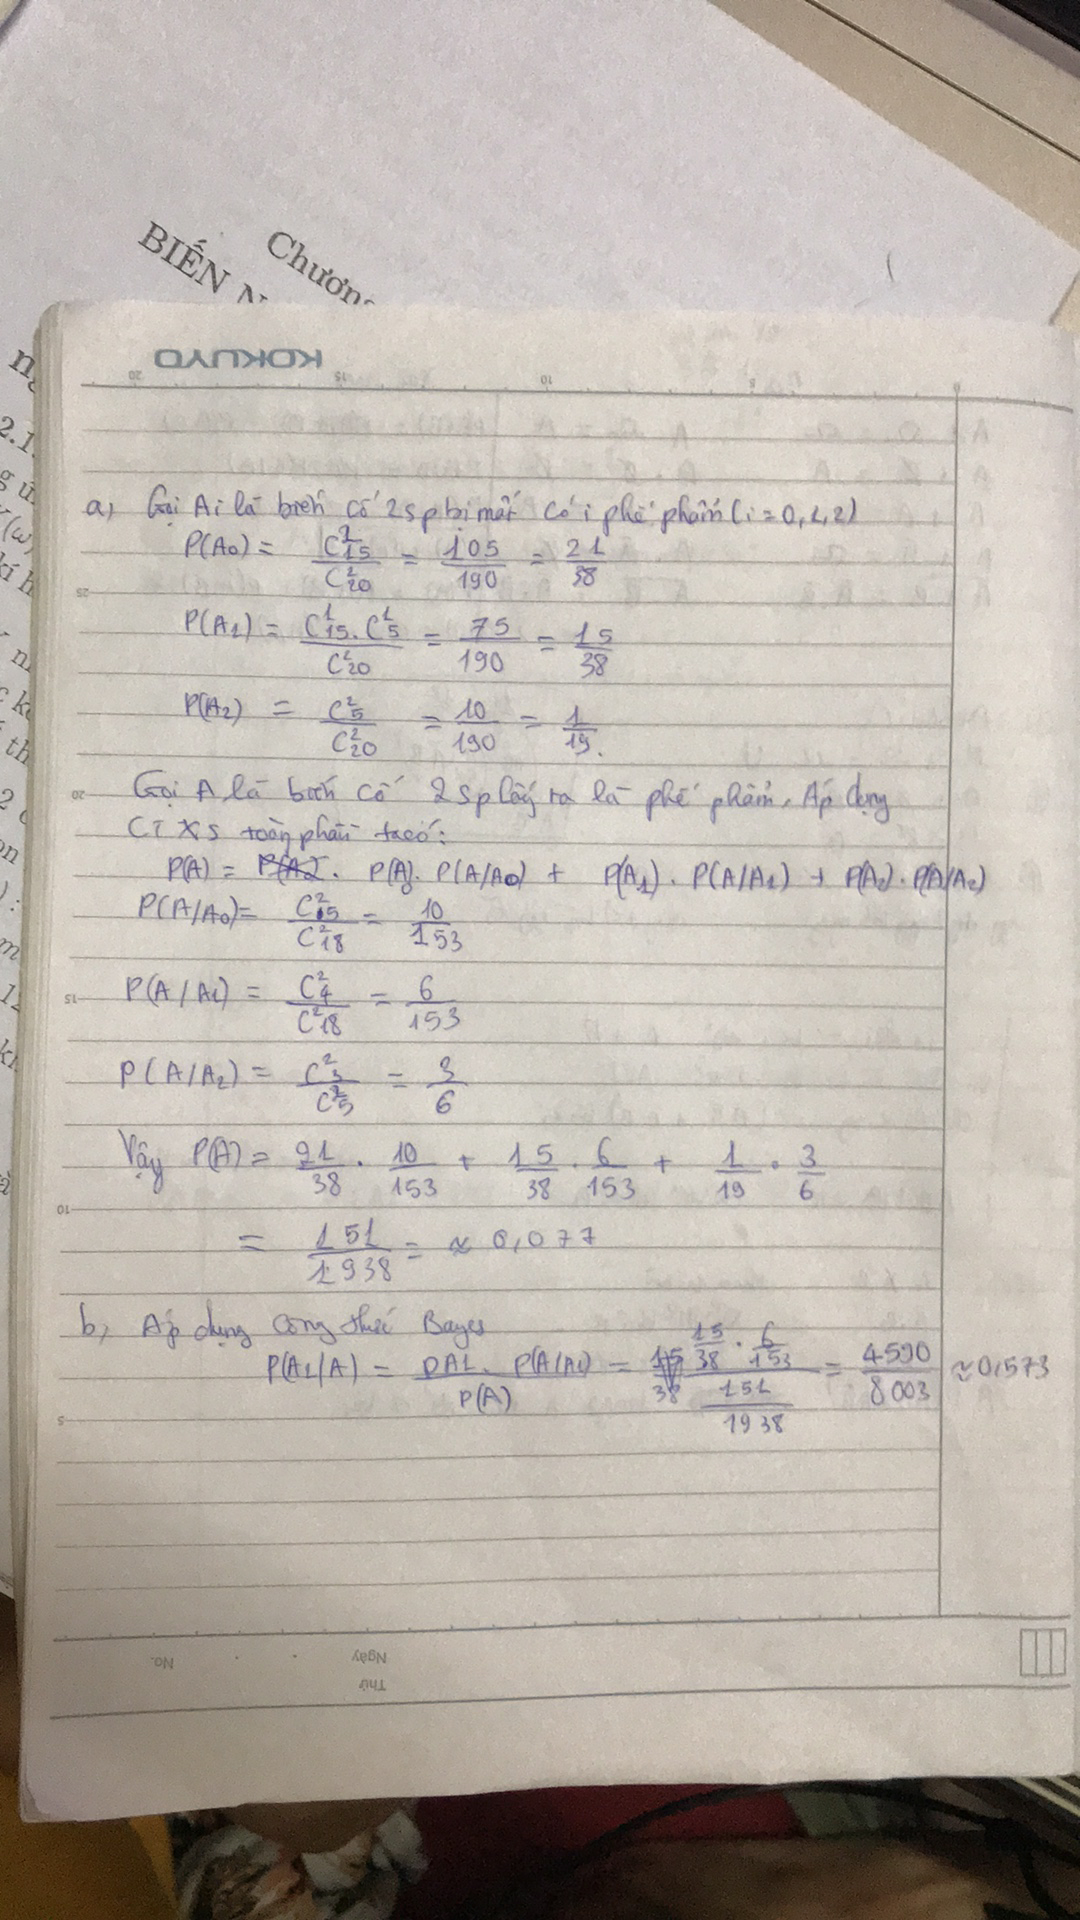 Chương
BIẾN N
KOKUYO
20 15 10
a, Gọi Ai là biến cố 2sp bị mất có i phế phẩm (i = 0,1,2)
P(A0) = C²15 / C²20 = 105/190 = 21/38
25
P(A1) = C¹15 . C¹5 / C²20 = 75/190 = 15/38
P(A2) = C²5 / C²20 = 10/190 = 1/19.
20
Gọi A là biến cố 2sp lấy ra là phế phẩm. Áp dụng
CT XS toàn phần ta có:
P(A) = P(A0). P(A/A0) + P(A1). P(A/A1) + P(A2). P(A/A2)
P(A/A0) = C²5 / C²18 = 10/153
15
P(A/A1) = C²4 / C²18 = 6/153
P(A/A2) = C²3 / C²5 = 3/6
Vậy P(A) = 21/38 . 10/153 + 15/38 . 6/153 + 1/19 . 3/6
10
= 151/1938 = ≈ 0,077
b, Áp dụng công thức Bayes
P(A1/A) = PA1. P(A/A1) / P(A) = 15/38 . 6/153 / 151/1938 = 4590/8003 ≈ 0,573
5
No. Ngày
Thứ